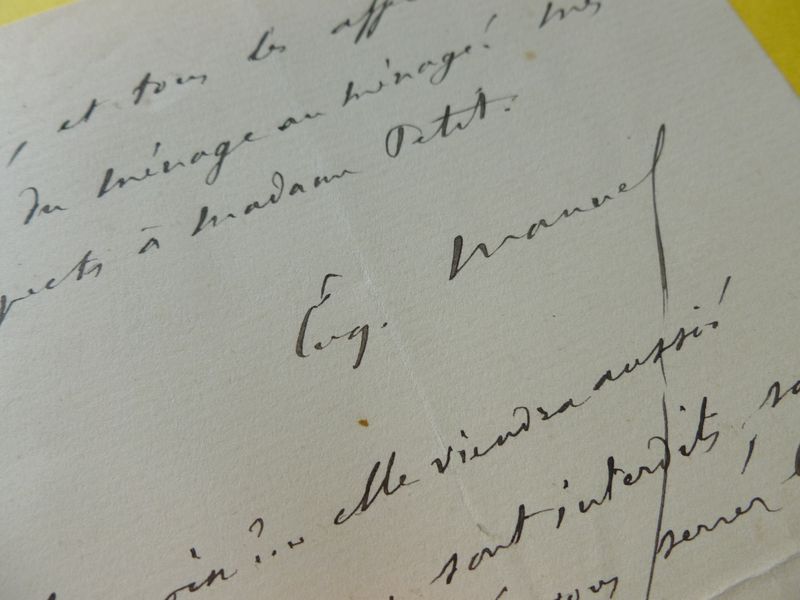 , et tous les
du ménage au ménage! Mes
pects à Madame Petit.
Eug. Manuel
Elle viendra aussi!
sont interdits,
tous serrer